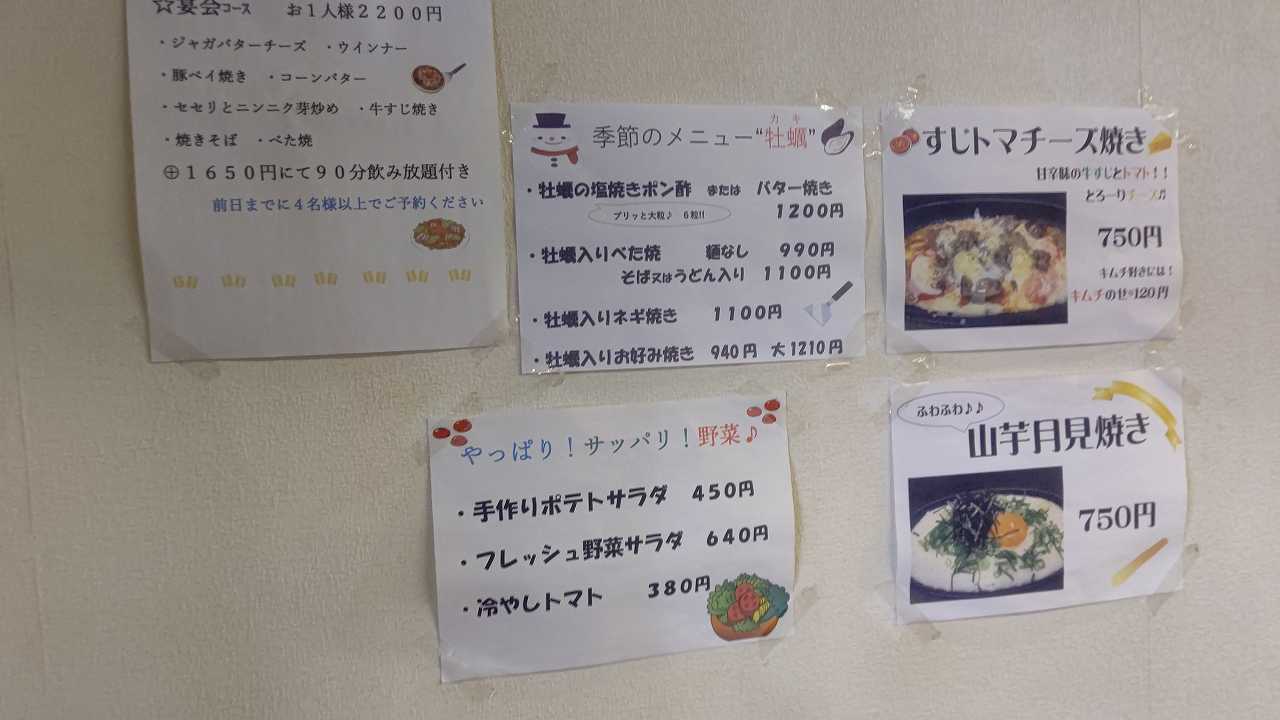 ☆宴会コース　お１人様２２００円
・ジャガバターチーズ　・ウインナー
・豚ペイ焼き　・コーンバター
・セセリとニンニク芽炒め　・牛すじ焼き
・焼きそば　・べた焼
⊕１６５０円にて９０分飲み放題付き
前日までに４名様以上でご予約ください
カキ
季節のメニュー“牡蠣”
・牡蠣の塩焼きポン酢　または　バター焼き
プリッと大粒♪　６粒!!　１２００円
・牡蠣入りべた焼　麺なし　９９０円
そば又はうどん入り　１１００円
・牡蠣入りネギ焼き　１１００円
・牡蠣入りお好み焼き　940円　大1210円
すじトマチーズ焼き
甘辛味の牛すじとトマト！！
とろーりチーズ♫
750円
キムチ好きには！
キムチのせ+120円
やっぱり！サッパリ！野菜♪
・手作りポテトサラダ　４５０円
・フレッシュ野菜サラダ　６４０円
・冷やしトマト　３８０円
ふわふわ♪♪
山芋月見焼き
750円